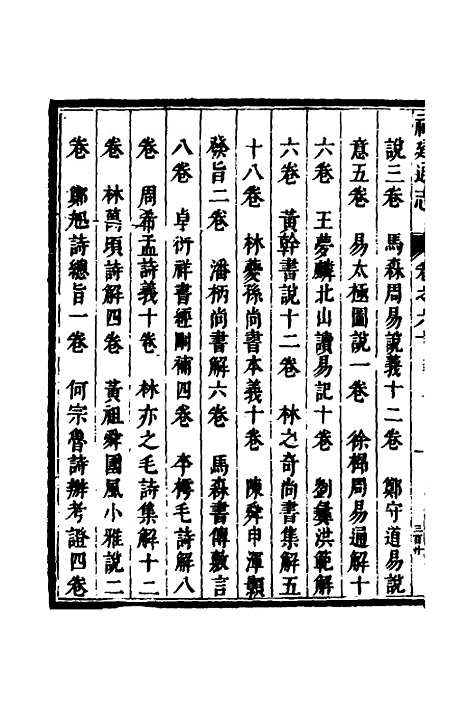 福建通志
卷之六十
說三卷　馬森周易說義十二卷　鄭守道易說
意五卷　易太極圖說一卷　徐㮚周易通解十
六卷　王夢麟北山讀易記十卷　劉彝洪範解
六卷　黃幹書說十二卷　林之奇尚書集解五
十八卷　林夔孫尚書本義十卷　陳舜申渾顥
發旨二卷　潘柄尚書解六卷　馬森書傳敷言
八卷　卓衍祥書經剛補四卷　李樗毛詩解八
卷　周希孟詩義十卷　林亦之毛詩集解十二
卷　林萬頃詩解四卷　黃祖舜國風小雅說二
卷　鄭旭詩總旨一卷　何宗魯詩辯考證四卷